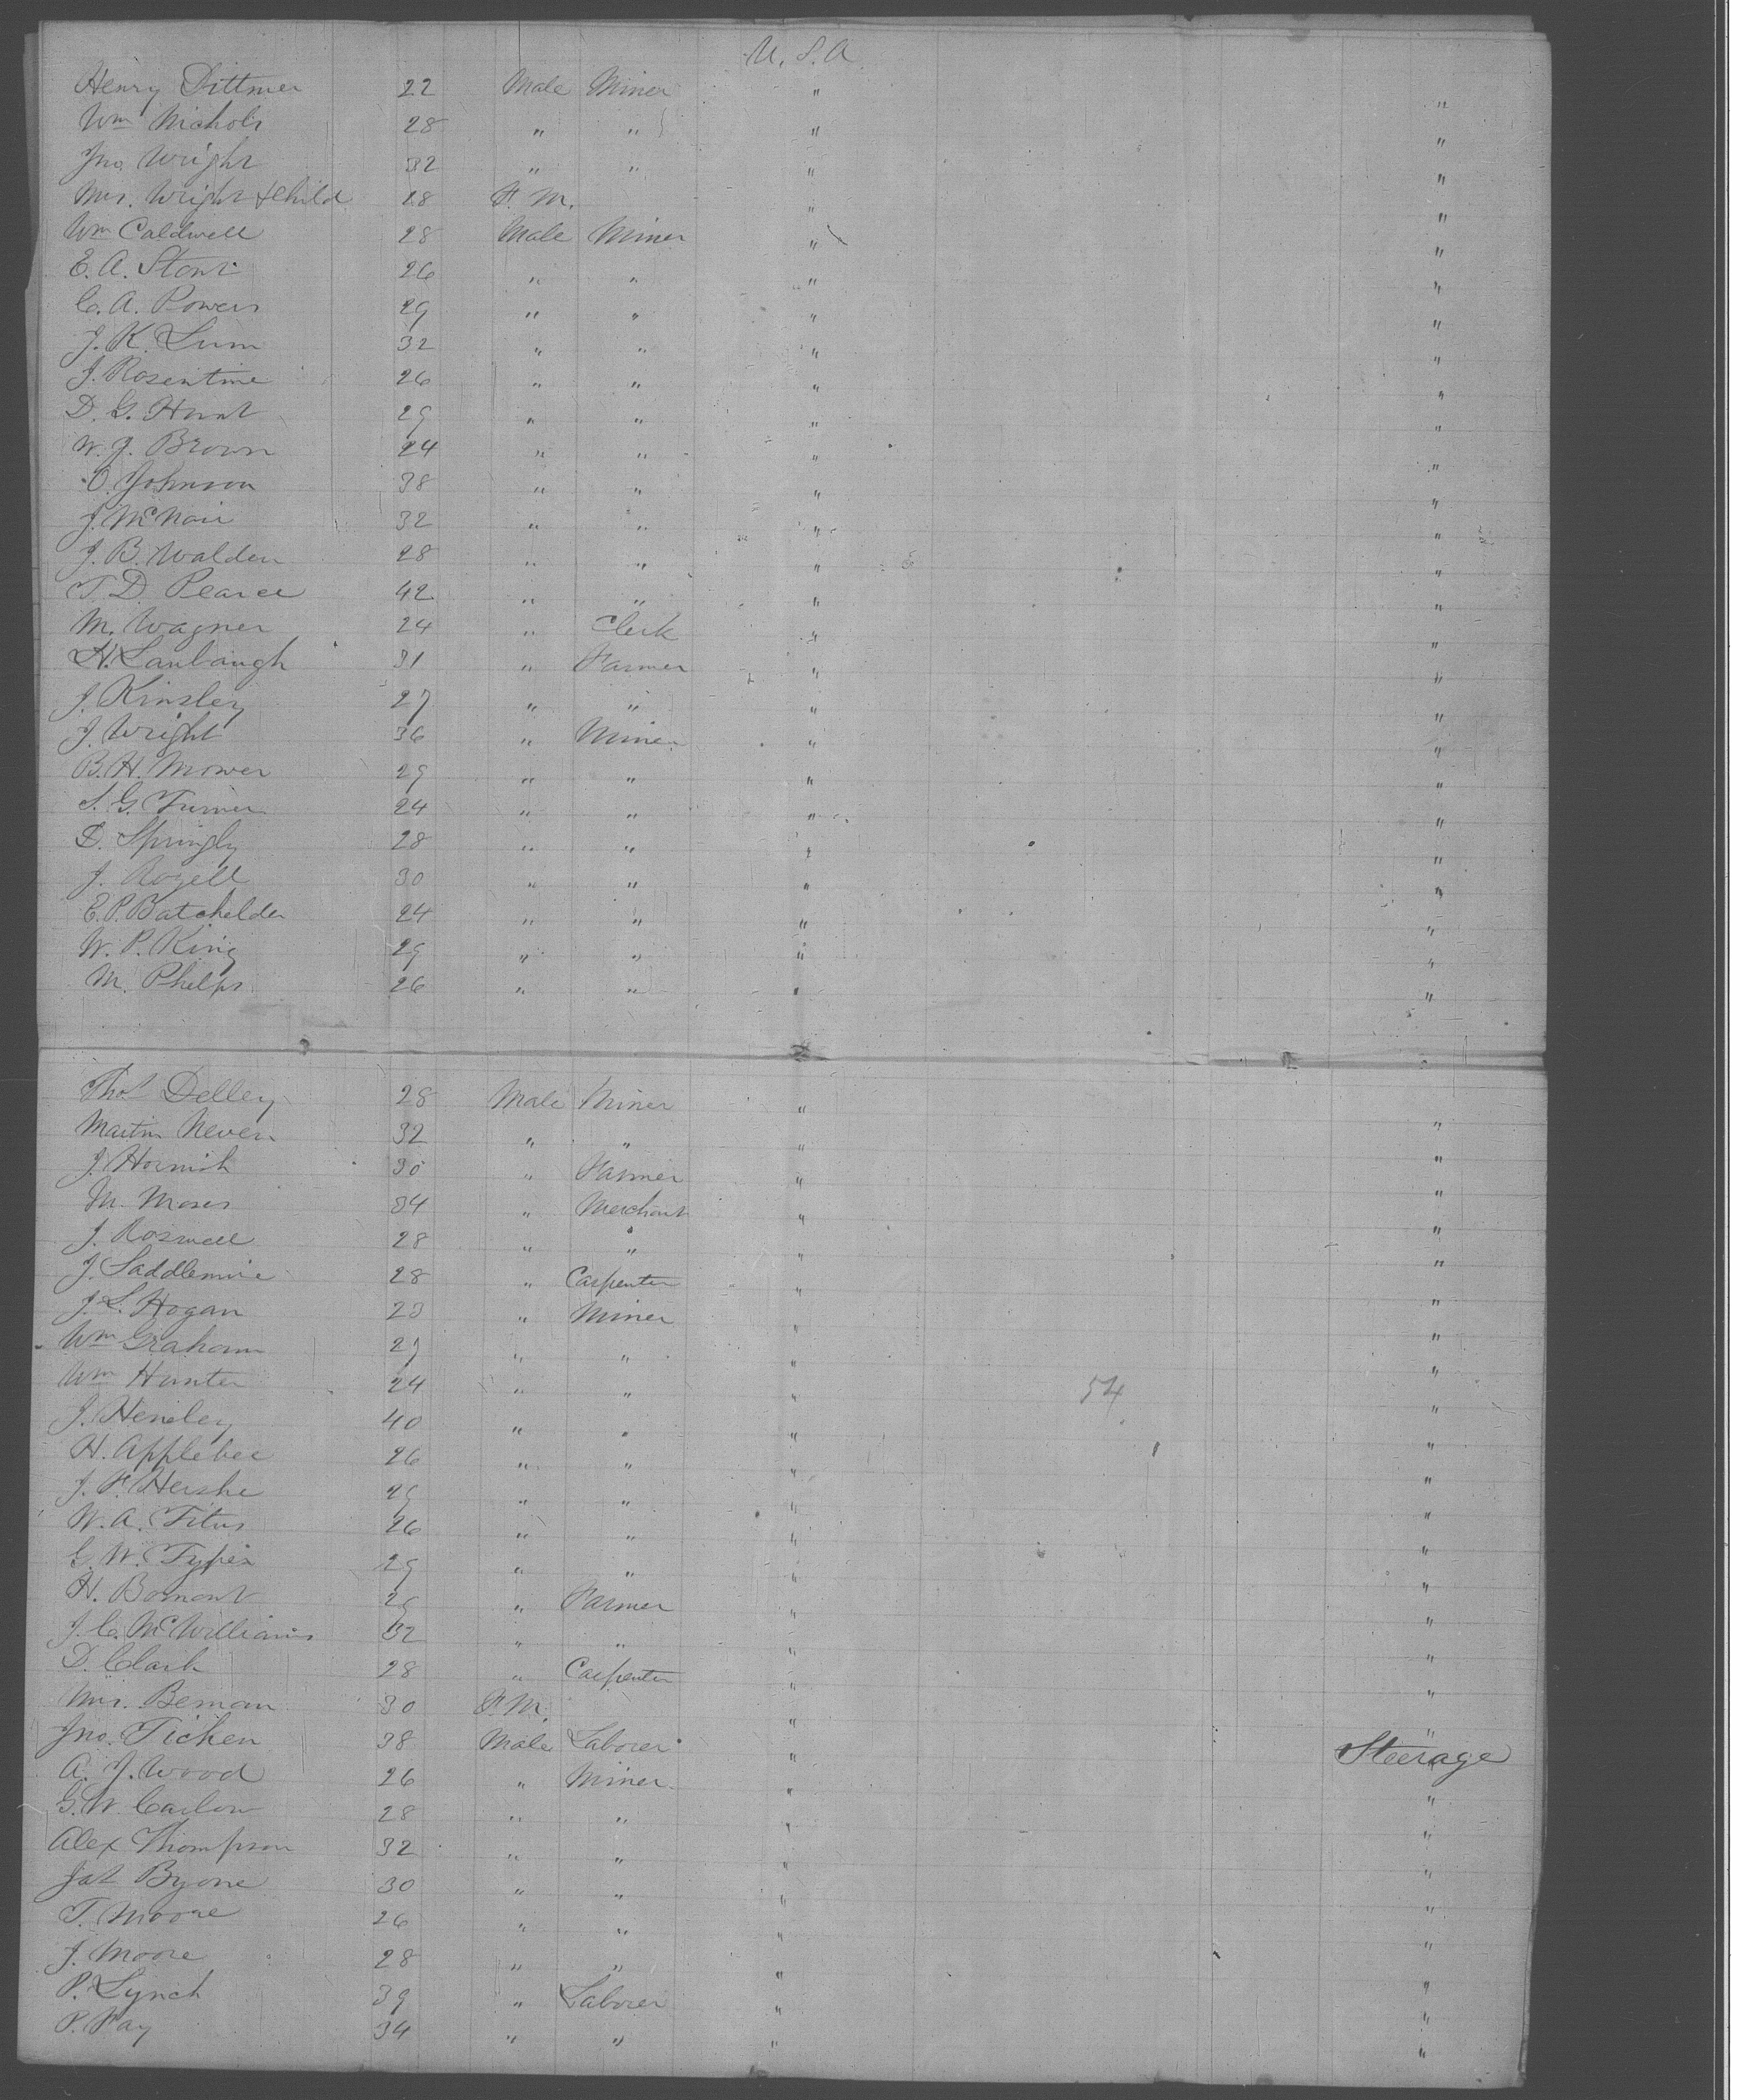 U. S. A
Henry Dittmer 22 Male Miner " "
Wm Nichols 28 " " " "
Jno Wright 32 " " " "
Mrs. Wright & Child 28 F. M. " "
Wm Caldwell 28 Male Miner " "
E. A. Stont 26 " " " "
C. A. Powers 29 " " " "
J. K. Lum 32 " " " "
J. Rosentine 26 " " " "
D. G. Hunt 29 " " " "
W. J. Brown 24 " " " "
O. Johnson 38 " " " "
J. McNair 32 " " " "
J. B. Walden 28 " " " "
T. D. Pearce 42 " " " "
M. Wagner 24 " Clerk " "
H. Lanbaugh 31 " Farmer " "
J. Kinsley 27 " " " "
J. Wright 36 " Miner " "
B. H. Mower 29 " " " "
S. G. Turner 24 " " " "
D. Springly 28 " " " "
J. Rozell 30 " " " "
E. P. Batchelder 24 " " " "
W. P. King 29 " " " "
M. Phelps 26 " " " "
Thos Delley 28 Male Miner " "
Martin Neven 32 " " " "
J. Hornish 30 " Farmer " "
M. Moses 34 " Merchant " "
J. Roswell 28 " " " "
J. Saddlemire 28 " Carpenter " "
J. L. Hogan 23 " Miner " "
Wm Graham 29 " " " "
Wm Hunter 24 " " " 54 "
J. Hensley 40 " " " "
H. Applebee 26 " " " "
J. F. Hershe 29 " " " "
W. A. Titus 26 " " " "
G. W. Typer 29 " " " "
H. Bomont 29 " Farmer " "
J. C. McWilliams 32 " " " "
D. Clark 28 " Carpenter " "
Mrs. Beman 30 F. M. " "
Jno. Ticken 38 Male Laborer " Steerage
A. J. Wood 26 " Miner " "
G. W. Carlow 28 " " " "
Alex Thompson 32 " " " "
Pat Byone 30 " " " "
T. Moore 26 " " " "
J. Moore 28 " " " "
P. Lynch 39 " Laborer " "
P. Fay 34 " " " "